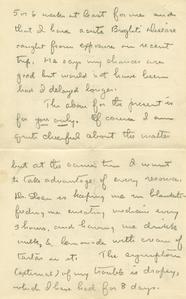 5 or 6 weeks at best for me and
that I have acute Bright's Disease
caught from exposure on recent
trip. He says my chances are
good but would not have been
had I delayed longer.
The above for the present is
for you only. Of course I am
quite cheerful about the matter
but at the same time I want
to take advantage of every resource.
Dr. Sloan is keeping me in blankets
feeding me sweating medicine every
3 hours, and having me drink
milk, & lemonade with cream of
tartar in it. The symptom
(external) of my trouble is dropsy,
which I have had for 8 days.